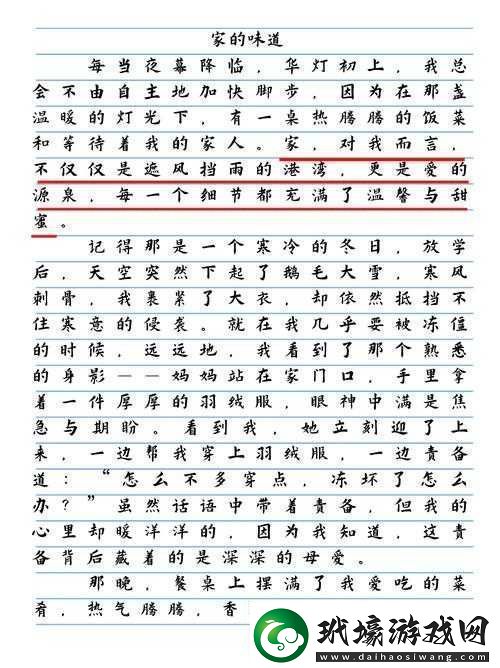 家的味道
每当夜幕降临，华灯初上，我总
会不由自主地加快脚步，因为在那盏
温暖的灯光下，有一桌热腾腾的饭菜
和等待着我的家人。家，对我而言，
不仅仅是遮风挡雨的港湾，更是爱的
源泉，每一个细节都充满了温馨与甜
蜜。
记得那是一个寒冷的冬日，放学
后，天空突然下起了鹅毛大雪，寒风
刺骨，我裹紧了大衣，却依然抵挡不
住寒意的侵袭。就在我几乎要被冻僵
的时候，远远地，我看到了那个熟悉
的身影——妈妈站在家门口，手里拿
着一件厚厚的羽绒服，眼神中满是焦
急与期盼。看到我，她立刻迎了上
来，一边帮我穿上羽绒服，一边责备
道：“怎么不多穿点，冻坏了怎么
办？”虽然话语中带着责备，但我的
心里却暖洋洋的，因为我知道，这责
备背后藏着的是深深的母爱。
那晚，餐桌上摆满了我爱吃的菜
肴，热气腾腾，香
玳壕游戏网
www.daihaosiwang.com